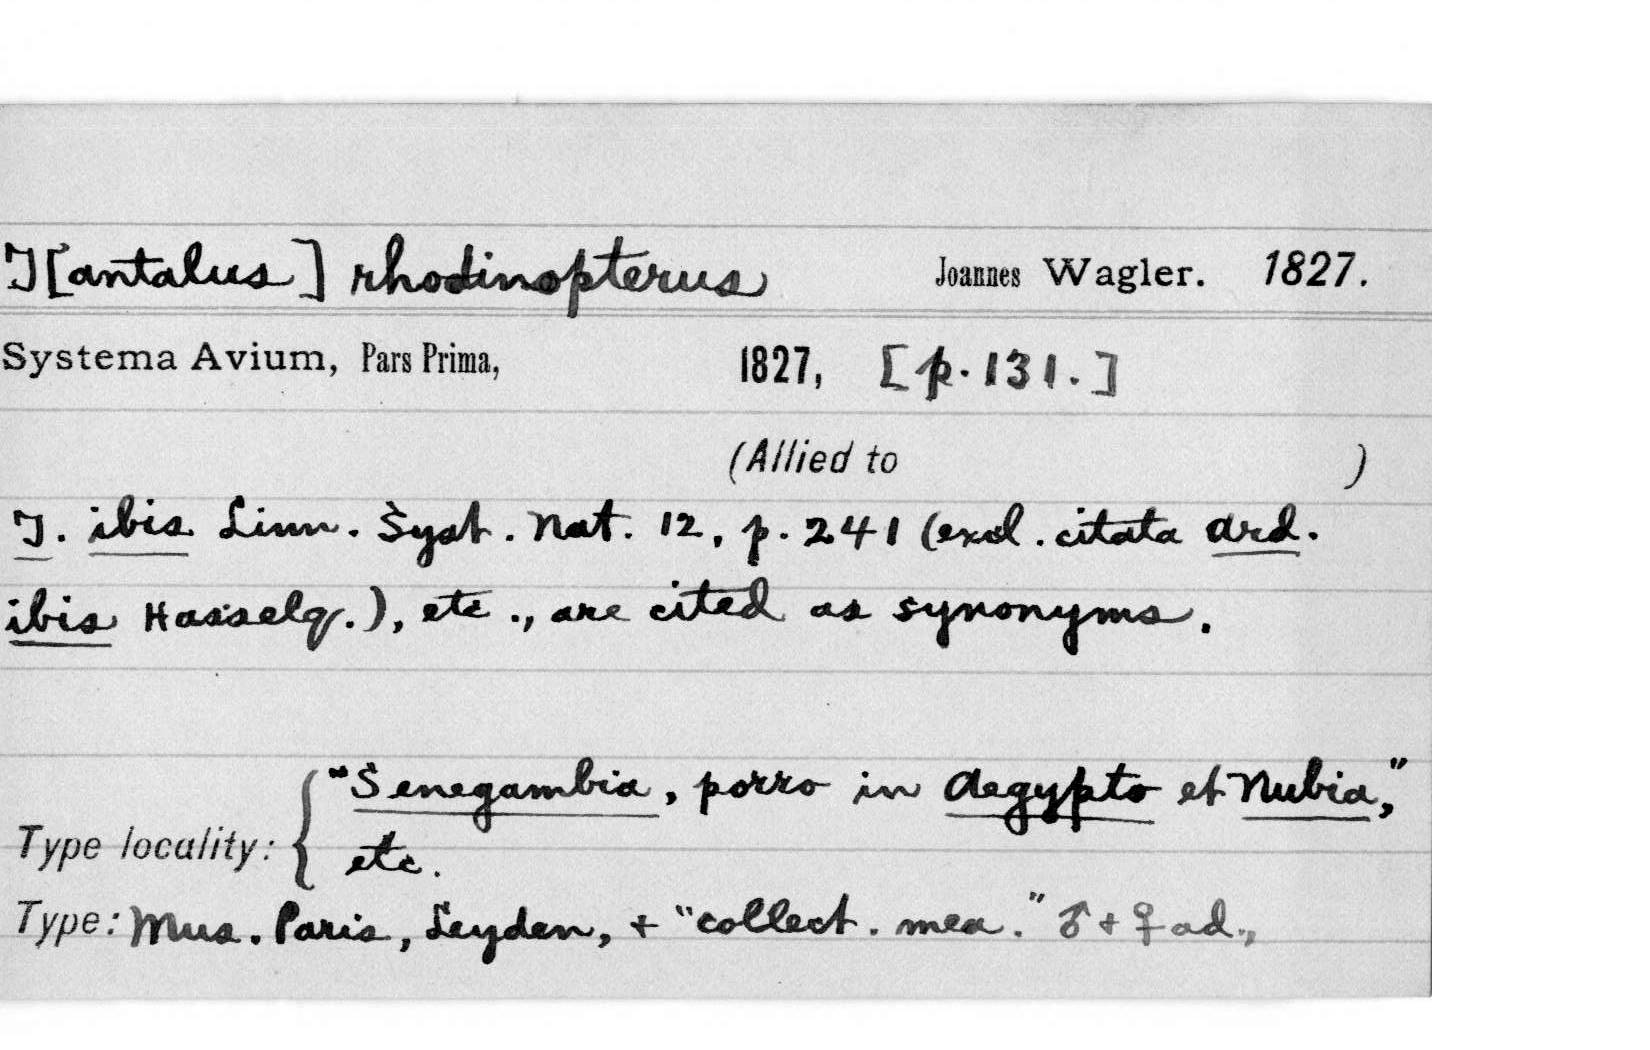 T[antalus] rhodinopterus Joannes Wagler. 1827.
Systema Avium, Pars Prima, 1827, [p. 131.]
(Allied to )
T. ibis Linn. Syst. Nat. 12, p. 241 (excl. citata Ard.
ibis Hasselq.), etc., are cited as synonyms.
"Senegambia, porro in Aegypto et Nubia,"
Type locality: { etc.
Type: Mus. Paris, Leyden, + "collect. mea." ♂ + ♀ ad.,